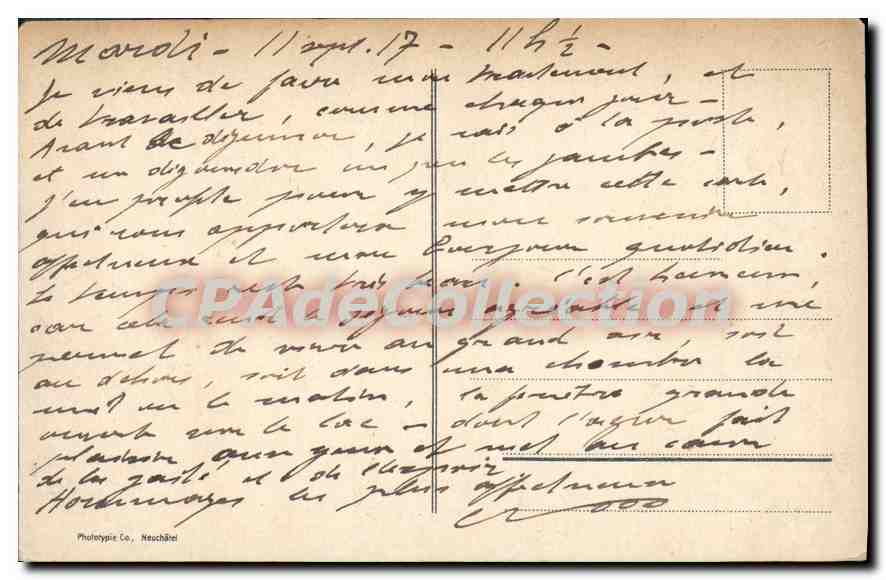 Mardi - 11 sept. 17 - 11 h ½ -
Je viens de faire mon traitement, et
de travailler, comme chaque jour -
Avant de déjeuner, je vais à la poste,
et me dégourdir un peu les jambes -
J'en profite pour y mettre cette carte,
qui vous apportera mon souvenir
affectueux et mon bonjour quotidien.
Le temps reste très beau. C'est heureux,
car cela rend le séjour agréable et me
permet de vivre au grand air, soit
au dehors, soit dans ma chambre la
nuit ou le matin, la fenêtre grande
ouverte sur le lac - dont l'azur fait
plaisir aux yeux et met au cœur
de la gaîté et de l'espoir
Hommages les plus affectueux
CPAdeCollection
Phototypie Co., Neuchâtel